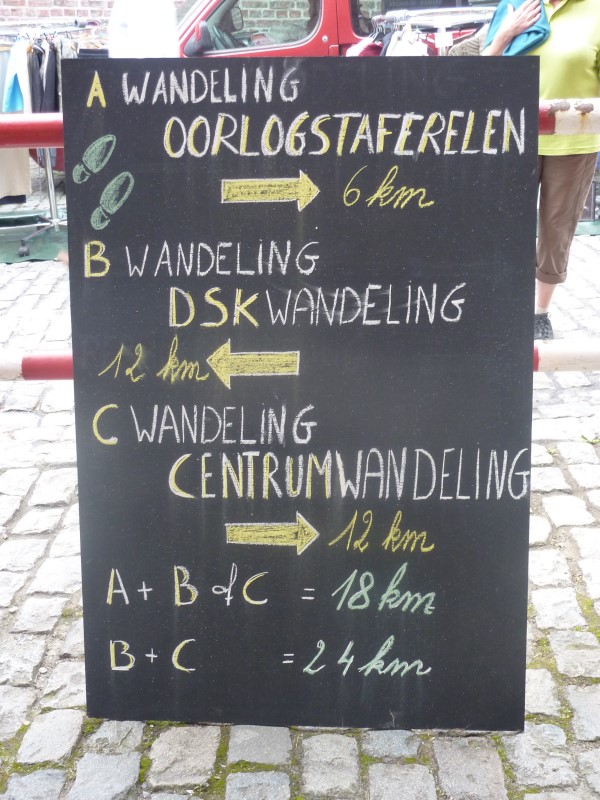 A WANDELING
OORLOGSTAFERELEN
6 km
B WANDELING
DSK WANDELING
12 km
C WANDELING
CENTRUMWANDELING
12 km
A + B of C = 18 km
B + C = 24 km